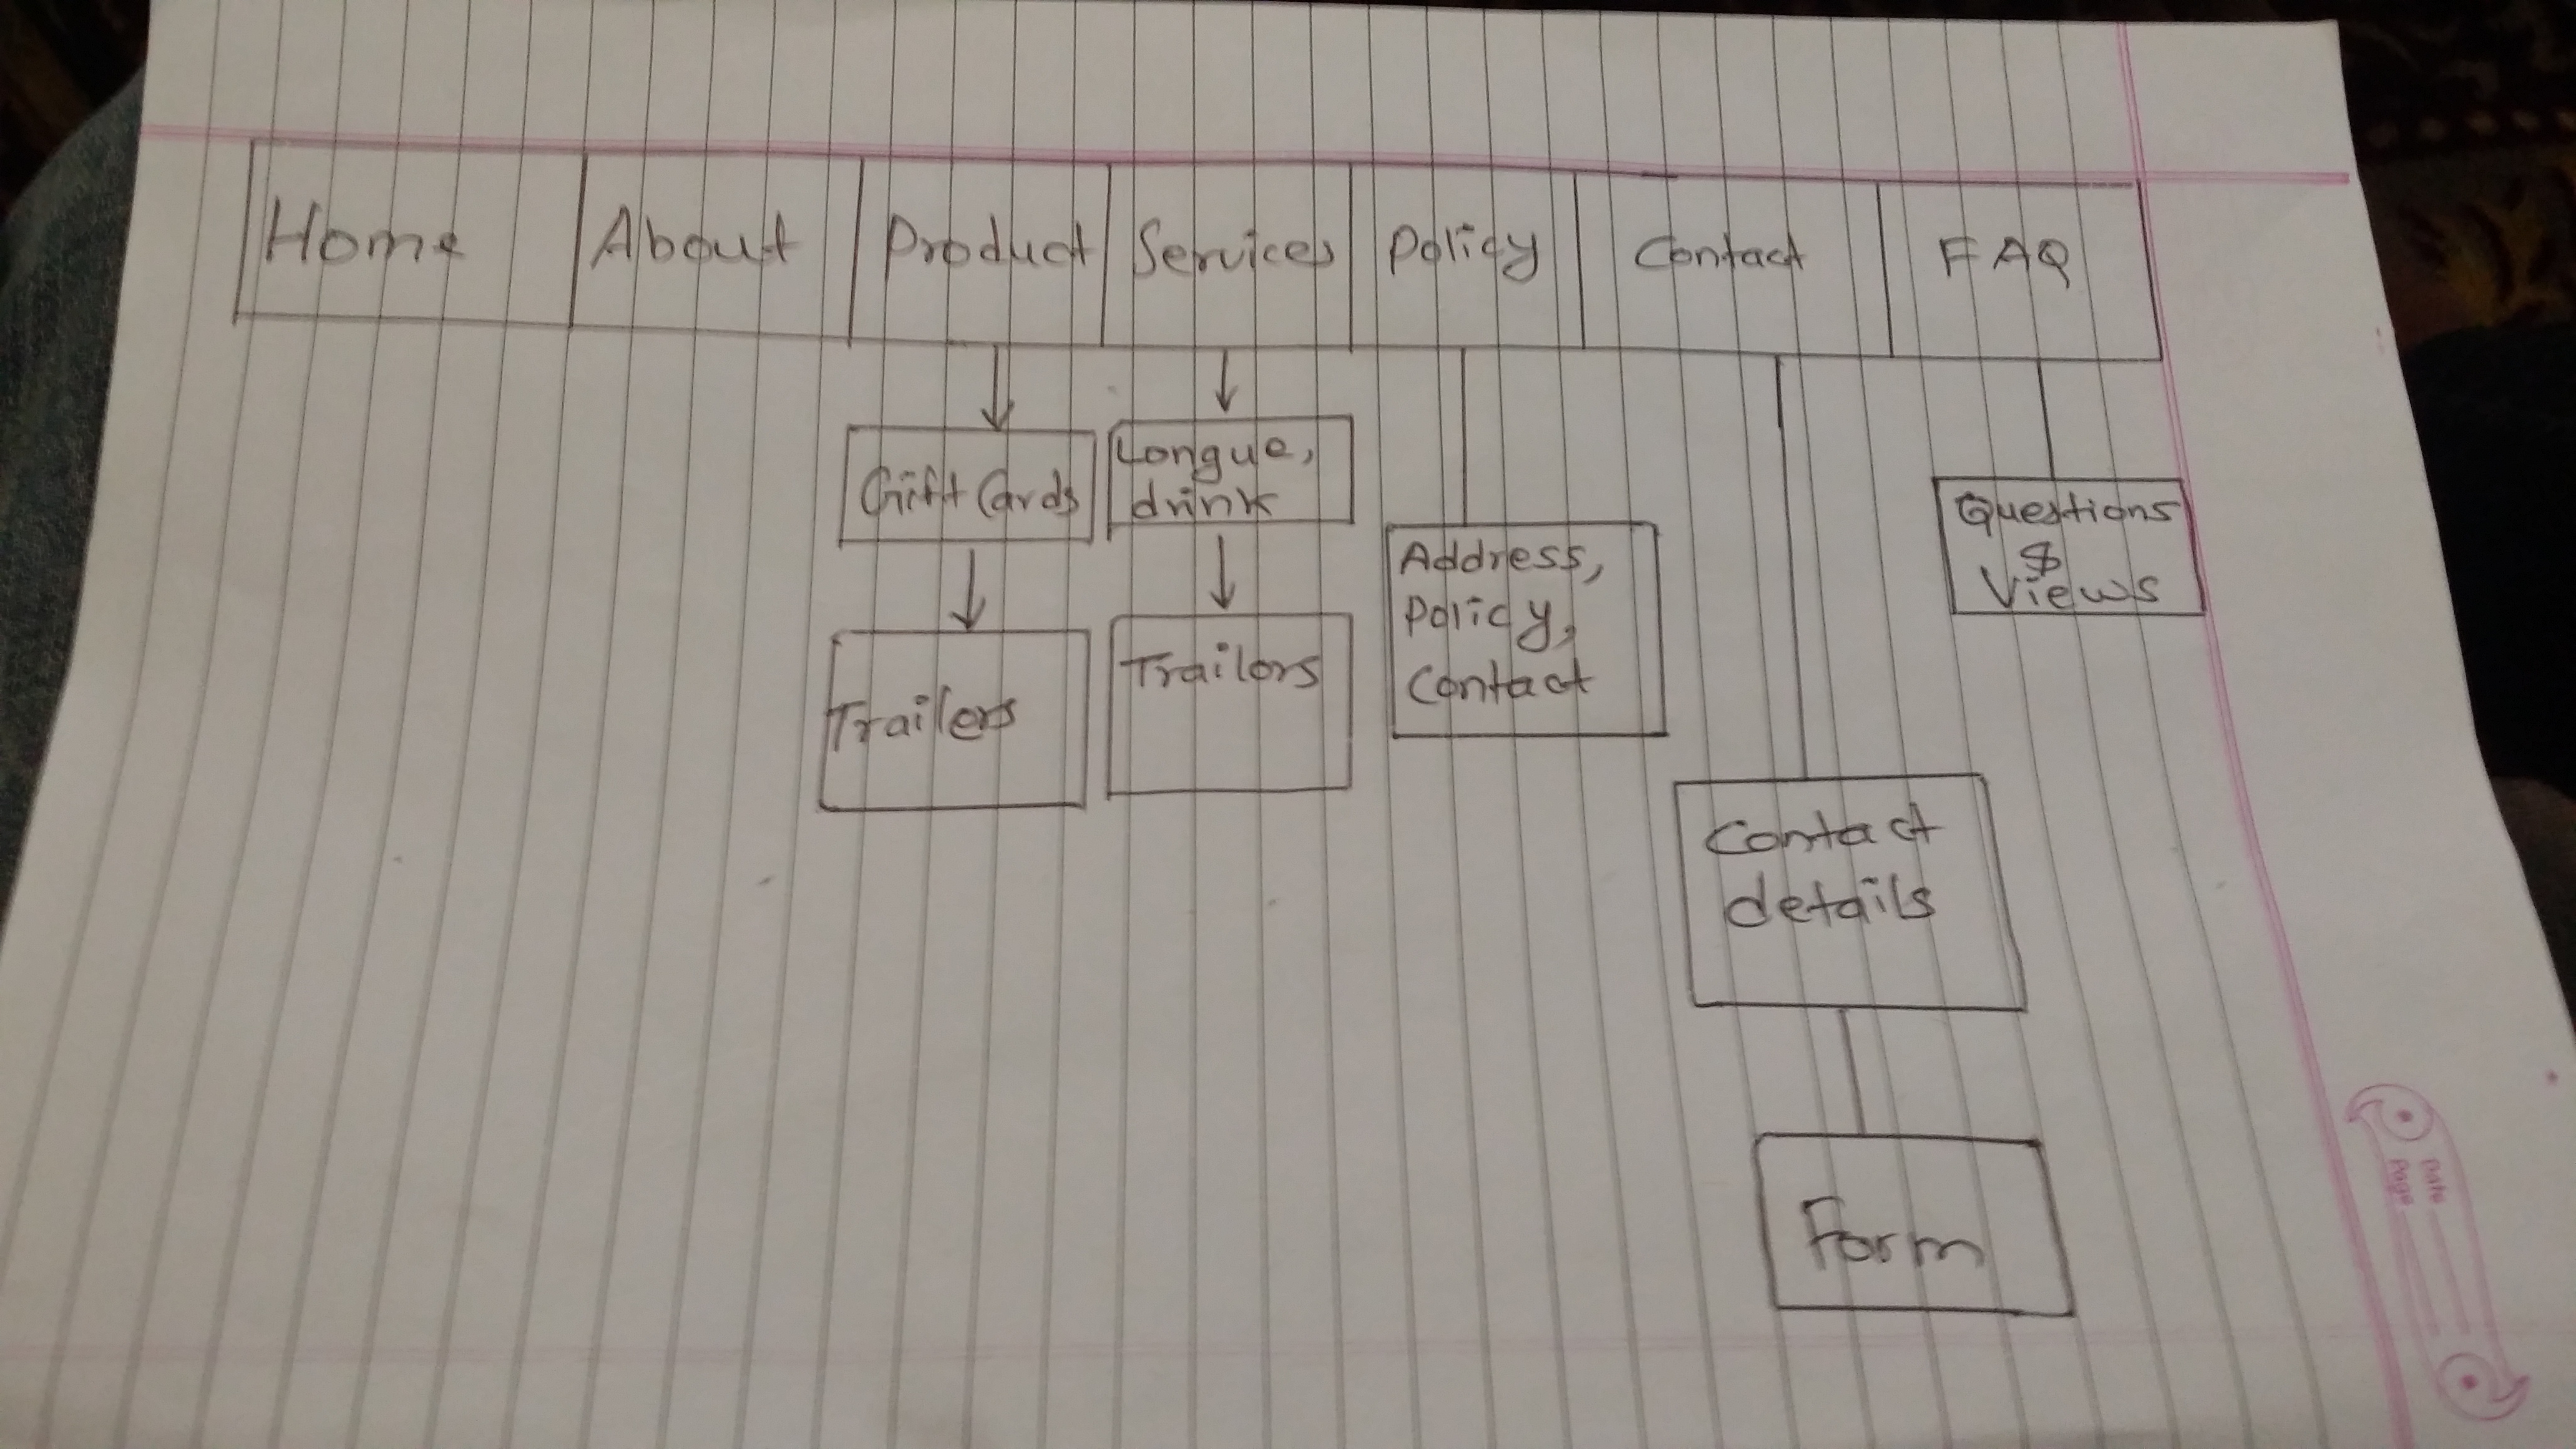 Home About Product Services Policy Contact FAQ
Gift Cards
Longue,
drink
Trailers
Trailors
Address,
Policy,
Contact
Contact
details
Form
Questions
&
Views
Page
Date